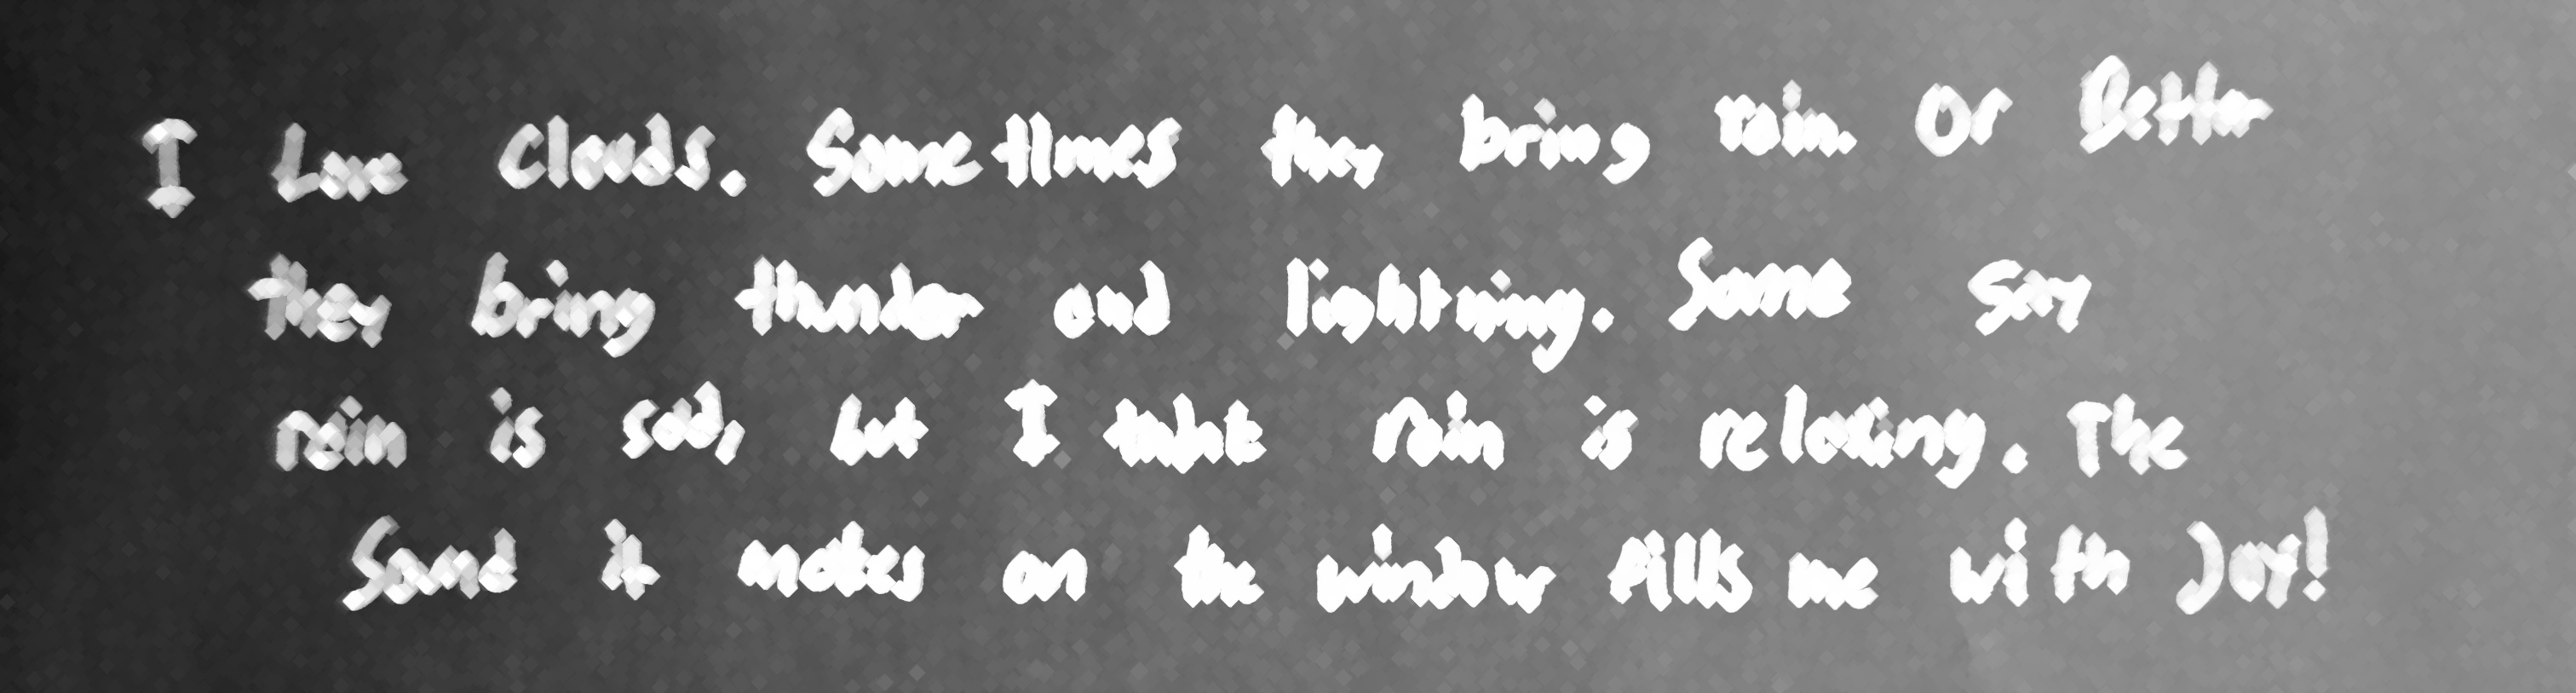 I Love Clouds. Sometimes they bring rain. Or Better
they bring thunder and lightning. Some say
rain is sad, but I think rain is relaxing. The
Sound it makes on the window fills me with Joy!